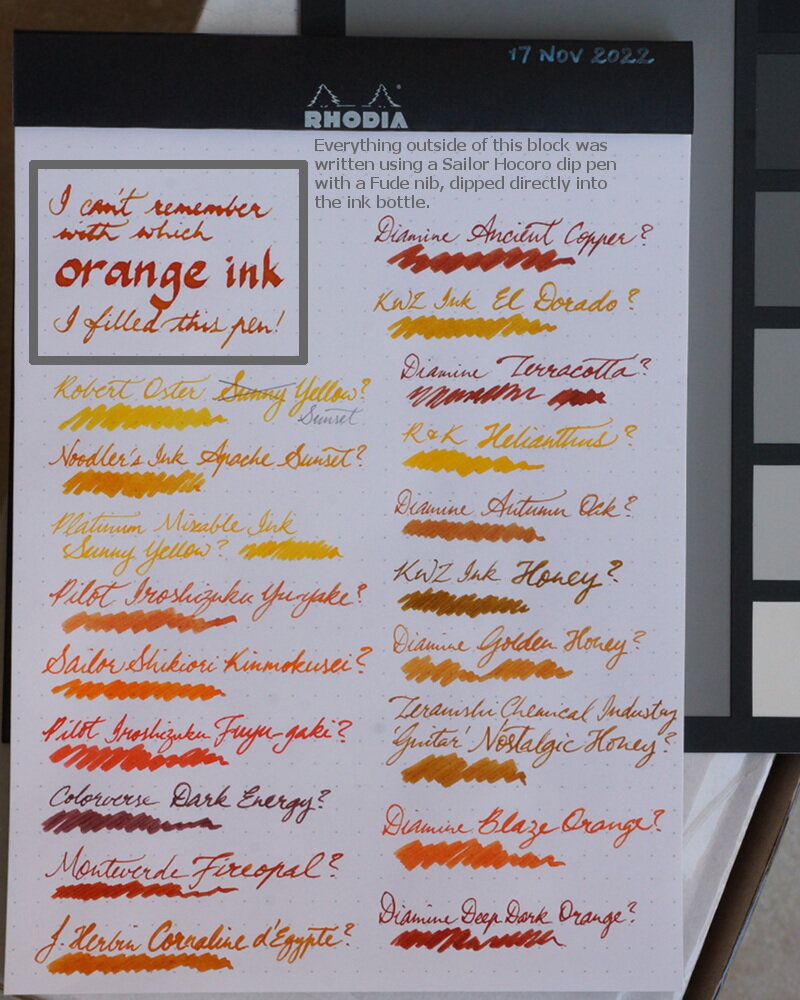 17 NOV 2022
RHODIA
Everything outside of this block was
written using a Sailor Hocoro dip pen
with a Fude nib, dipped directly into
the ink bottle.
I can't remember
with which
orange ink
I filled this pen!
Robert Oster Sunny Yellow?
Sunset
Noodler's Ink Apache Sunset?
Platinum Mixable Ink
Sunny Yellow?
Pilot Iroshizuku Yu-yake?
Sailor Shikiori Kinmokusei?
Pilot Iroshizuku Fuyu-gaki?
Colorverse Dark Energy?
Monteverde Fireopal?
J. Herbin Corraline d'Egypte?
Diamine Ancient Copper?
KWZ Ink El Dorado?
Diamine Terracotta?
R&K Helianthus?
Diamine Autumn Oak?
KWZ Ink Honey?
Diamine Golden Honey?
Teranishi Chemical Industry
'Guitar' Nostalgic Honey?
Diamine Blaze Orange?
Diamine Deep Dark Orange?